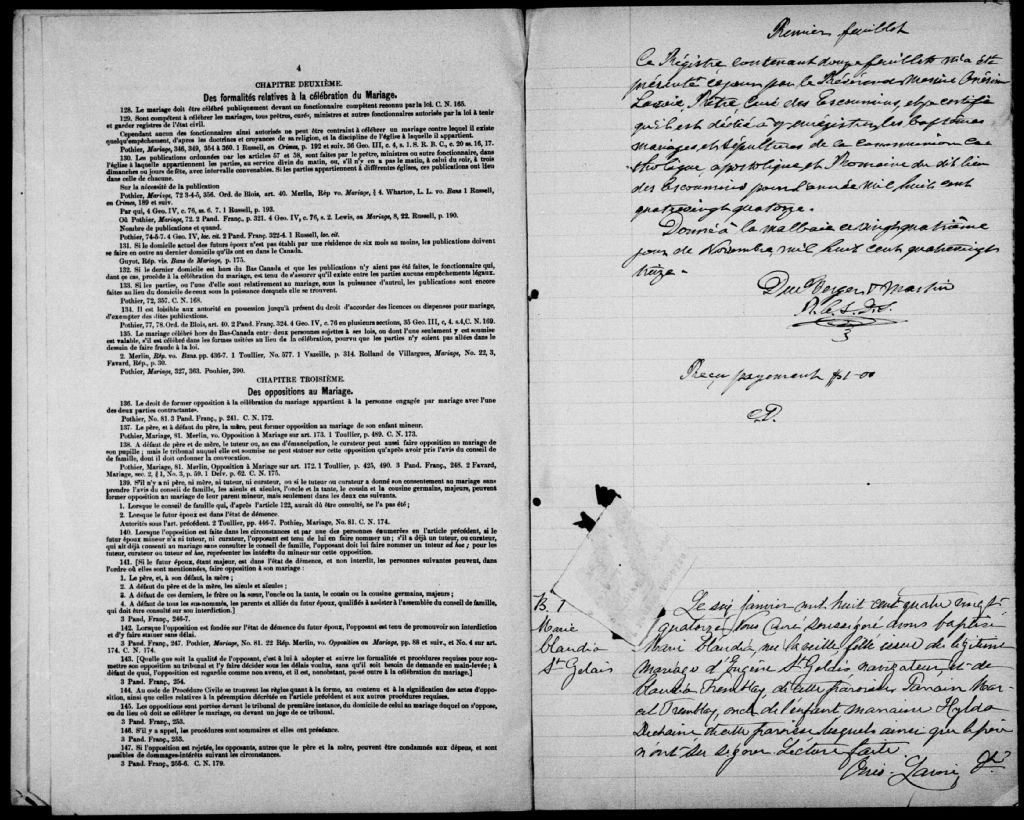 4
CHAPITRE DEUXIÈME.
Des formalités relatives à la célébration du Mariage.
128. Le mariage doit être célébré publiquement devant un fonctionnaire compétent reconnu par la loi. C. N. 165.
129. Sont compétent à célébrer les mariages, tous prêtres, curés, ministres et autres fonctionnaires autorisés par la loi à tenir
et garder registres de l'état civil.
Cependant aucun des fonctionnaires ainsi autorisés ne peut être contraint à célébrer un mariage contre lequel il existe
quelqu'empêchement, d'après les doctrines et croyances de sa religion, et la discipline de l'église à laquelle il appartient.
Pothier, Mariage, 346, 349, 354 à 360. 1 Russell, on Crimes, p. 192 et suiv. 36 Geo. III, c. 4, s. 1. S. R. B. C., c. 20 ss. 16, 17.
130. Les publications ordonnées par les articles 57 et 58, sont faites par le prêtre, ministre ou autre fonctionnaire, dans
l'église à laquelle appartiennent les parties, au service divin du matin, ou, s'il n'y en a pas le matin, à celui du soir, à trois
dimanches ou jours de fête, avec intervalle convenables. Si les parties appartiennent à différentes églises, ces publications ont lieu
dans celle de chacune.
Sur la nécessité de la publication
Pothier, Mariage, 72 3-4-5, 356. Ord. de Blois, art. 40. Merlin, Rép vo. Mariage, § 4. Wharton, L. L. vo. Bans 1 Russell,
on Crimes, 189 et suiv.
Par qui, 4 Geo. IV, c. 76, ss. 6. 7. 1 Russell, p. 193.
Où Pothier, Mariage, 72. 2 Pand. Franç., p. 321. 4 Geo. IV, c. 76, s. 2. Lewis, on Mariage, 8, 22. Russell, p. 190.
Nombre de publications et quand.
Pothier, 74-5-7. 4 Geo. IV, loc. cit. 2 Pand. Franç. 322-4. 1 Russell, loc. cit.
131. Si le domicile actuel des futurs époux n'est pas établi par une résidence de six mois au moins, les publications doivent
se faire en outre au dernier domicile qu'ils ont eu dans le Canada.
Guyot, Rép. vis. Bans de Mariage, p. 175.
132. Si le dernier domicile est hors du Bas Canada et que les publications n'y aient pas été faites, le fonctionnaire qui,
dant ce cas, procède à la célébration du mariage, est tenu de s'assurer qu'il existe entre les parties aucuns empêchements légaux.
133. Si les parties, ou l'une d'elle sont relativement au mariage, sous la puissance d'autrui, les publications sont encore
faites au lieu du domicile de ceux sous la puissance desquels elle se trouvent.
Pothier, 72, 357. C. N. 168.
134. Il est loisible aux autorité en possession jusqu'à présent du droit d'accorder des licences ou dispenses pour mariage,
d'exempter des dites publications.
Pothier, 77, 78. Ord. de Blois, art. 40. 2 Pand. Franç. 324. 4 Geo. IV, c. 76 en plusieurs sections, 35 Geo. III, c. 4. s.4,C. N. 169.
135. Le mariage célébré hors du Bas-Canada entre deux personnes sujettes à ses lois, ou dont l'une seulement y est soumise
est valable, s'il est célébré dans les formes usitées au lieu de la célébration, pourvu que les parties n'y soient pas allées dans le
dessein de faire fraude à la loi.
2. Merlin, Rép. vo. Bans. pp. 436-7. 1 Toullier, No. 577. 1 Vazeille, p. 314. Rolland de Villargues, Mariage, No. 22, 3,
Favard, Rép., p. 30.
Pothier, Mariage, 327, 363. Pouhier, 390.
CHAPITRE TROISIÈME.
Des oppositions au Mariage.
136. Le droit de former opposition à la célébration du mariage appartient à la personne engagée par mariage avec l'une
des deux parties contractantes.
Pothier, No. 81. 3 Pand. Franç., p. 241. C. N. 172.
137. Le père, et à défaut du père, la mère, peut former opposition au mariage de son enfant mineur.
Pothier, Mariage, 81. Merlin, vo. Opposition à Mariage sur art. 173. 1 Toullier, p. 489. C. N. 173.
138. A défaut de père et de mère, le tuteur ou, au cas d'émancipation, le curateur peut aussi faire opposition au mariage de
son pupille; mais le tribunal auquel elle est soumise ne peut statuer sur cette opposition qu'après avoir pris l'avis du conseil de
famille, dont il doit ordonner la convocation.
Pothier, Mariage, 81. Merlin, Opposition à Mariage sur art. 172. 1 Toullier, p. 425, 490. 3 Pand. Franç., 248. 2 Favard,
Mariage, sec. 2, § 1, No. 3, p. 59. 1 Delv. p. 62. C. N. 175.
139. S'il n'y a ni père, ni mère, ni tuteur, ni curateur, ou si le tuteur ou curateur a donné son consentement au mariage sans
prendre l'avis du conseil de famille, les aïeuls et aïeules, l'oncle et la tante, le cousin et la cousine germains, majeurs, peuvent
former opposition au mariage de leur parent mineur, mais seulement dans les deux cas suivants.
1. Lorsque le conseil de famille qui, d'après l'article 122, aurait dû être consulté, ne l'a pas été;
2. Lorsque le futur époux est dans l'état de démence.
Autorités sous l'art. précédent. 2 Toullier, pp. 446-7. Pothier, Mariage, No. 81. C. N. 174.
140. Lorsque l'opposition est faite dans les circonstances et par une des personnes énumerées en l'article précédent, si le
futur époux mineur n'a ni tuteur, ni curateur, l'opposant est tenu de lui en faire nommer un; s'il a déjà un tuteur, ou curateur,
qui ait déjà consenti au mariage sans consulter le conseil de famille, l'opposant doit lui faire nommer un tuteur ad hoc; pour les
tuteur, curateur ou tuteur ad hoc, représenter les intérêts du mineur sur cette opposition.
141. [Si le futur époux, étant majeur, est dans l'état de démence, et non interdit, les personnes suivantes peuvent, dans
l'ordre où elles sont mentionnées, faire opposition à son mariage:
1. Le père, et, à son défaut, la mère;
2. A défaut du père et de la mère, les aïeuls et aïeules;
3. A défaut de ces derniers, le frère ou la sœur, l'oncle ou la tante, le cousin ou la cousine germains, majeurs;
4. A défaut de tous les sus-nommés, les parents et alliés du futur époux, qualifiés à assister à l'assemblée du conseil de famille,
qui doit être consulté sur son interdiction.]
3 Pand. Franç., 246-7.
142. Lorsque l'opposition est fondée sur l'état de démence du futur époux, l'opposant est tenu de promouvoir son interdiction
et d'y faire stauer sans délai.
3 Pand. Franç., 247. Pothier, Mariage, No. 81. 22 Rép. Merlin, vo. Opposition au Mariage, pp. 88 et suiv., et No. 4 sur art.
174. C. N. 174.
143. [Quelque soit la qualité de l'opposant, c'est à lui à adopter et suivre les formalités et procédures requises pour sou-
mettre son opposition au tribunal et l'y faire décider sous les délais voulus, sans qu'il soit besoin de demande en main-levée; à
défaut de quoi, l'opposition est regardée comme non avenu, et il est, nonobstant, passé outre à la célébration du mariage.]
3 Pand. Franç., 254.
144. Au code de Procédure Civile se trouvent les règles quant à la forme, au contenu et à la signification des actes d'oppo-
sition, ainsi que celles relatives à la péremption décrétée en l'article précédent et aux autres procédures requises.
145. Les oppositions sont portées devant le tribunal de première instance, du domicile de celui au mariage duquel on s'oppose,
ou du lieu où doit se célébrer le mariage, ou devant un juge de ce tribunal.
3 Pand. Franç., 253.
146. S'il y a appel, les procédures sont sommaires et elles ont préséance.
3 Pand. Franç., 253.
147. Si l'opposition est rejetée, les opposants, autres que le père et la mère, peuvent être condamnés aux dépens, et sont
passibles de dommages-intérêts suivant les circonstances.
3 Pand. Franç., 255-6. C. N. 179.
Premier feuillet
Ce Régistre contenant douze feuillets m'a été
présenté ce jour par le Révérend Messire Onésime
Lavoie, Prêtre Curé des Escoumins, et je certifie
qu'il est destiné à y enregistrer les Baptêmes
mariages et Sépultures de la Communion Ca
tholique apostolique et Romaine du dit lieu
des Escoumins pour l'année mil huit cent
quatrevingt quatorze.
Donné à la malbaie ce vingtquatrième
jour de Novembre mil huit cent quatrevingt
treize.
DuBerger & Martin
P. C. S. D. S.
Reçu payement $1-00
B. 1
Marie
blandia
St Gelais
Le six janvier mil huit cent quatre vingt
quatorze Nous Curé soussigné avons baptisé
Marie blandia, née la veille fille issue du légitime
mariage d'Eugène St Gelais navigateur et de
Claudia Tremblay de cette paroisse Parrain Mar-
cel Tremblay, oncle de l'enfant marraine Hylda
Dechaine de cette paroisse lesquels ainsi que le père
n'ont su signer. Lecture faite
Onés. Lavoie Ptre